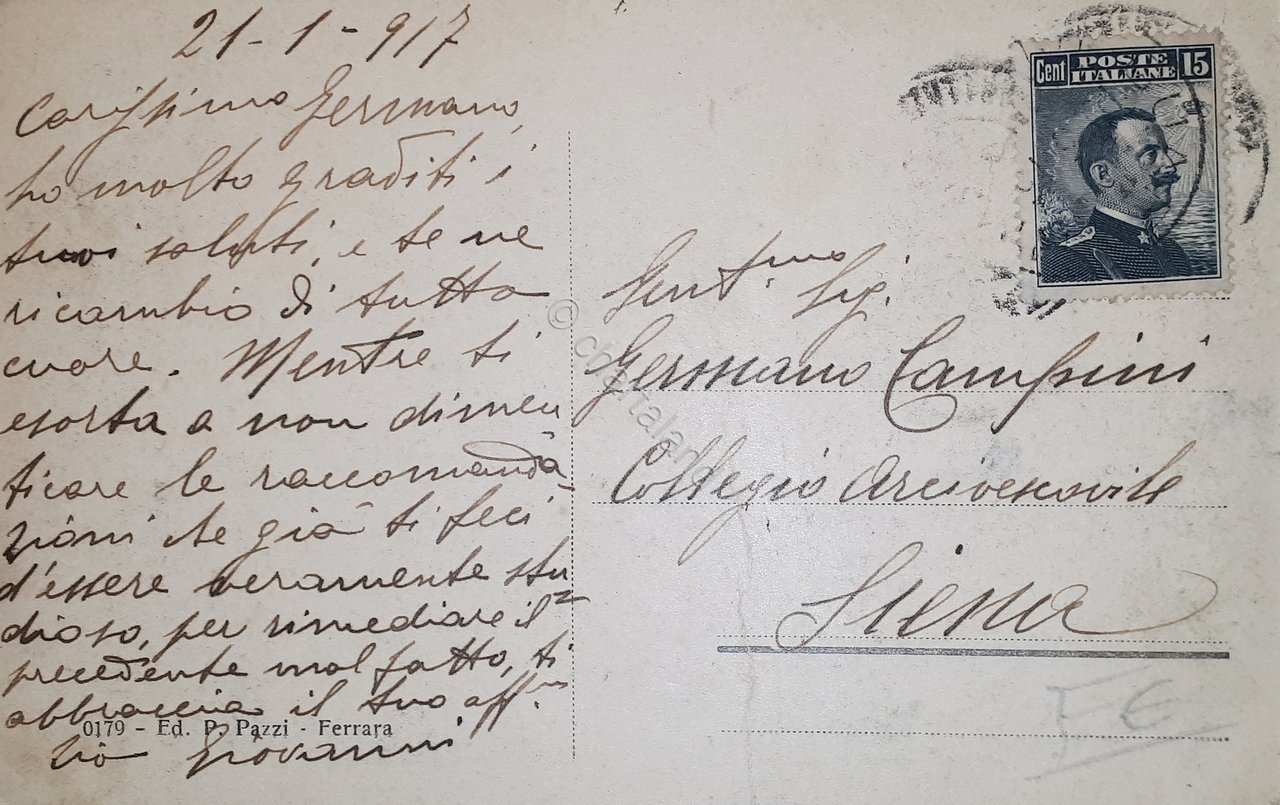 21-1-917
Carissimo Germano,
ho molto graditi i
tuoi saluti, e te ne
ricambio di tutto
cuore. Mentre ti
esorto a non dimen
ticare le raccomanda
zioni che già ti feci
d'essere veramente stu
dioso, per rimediare il
precedente mal fatto, ti
abbraccia il tuo aff.mo
zio Giovanni
0179 - Ed. P. Pazzi - Ferrara
Cent POSTE ITALIANE 15
Gent.mo Sig.
Germano Campini
Collegio Arcivescovile
Siena
5 €